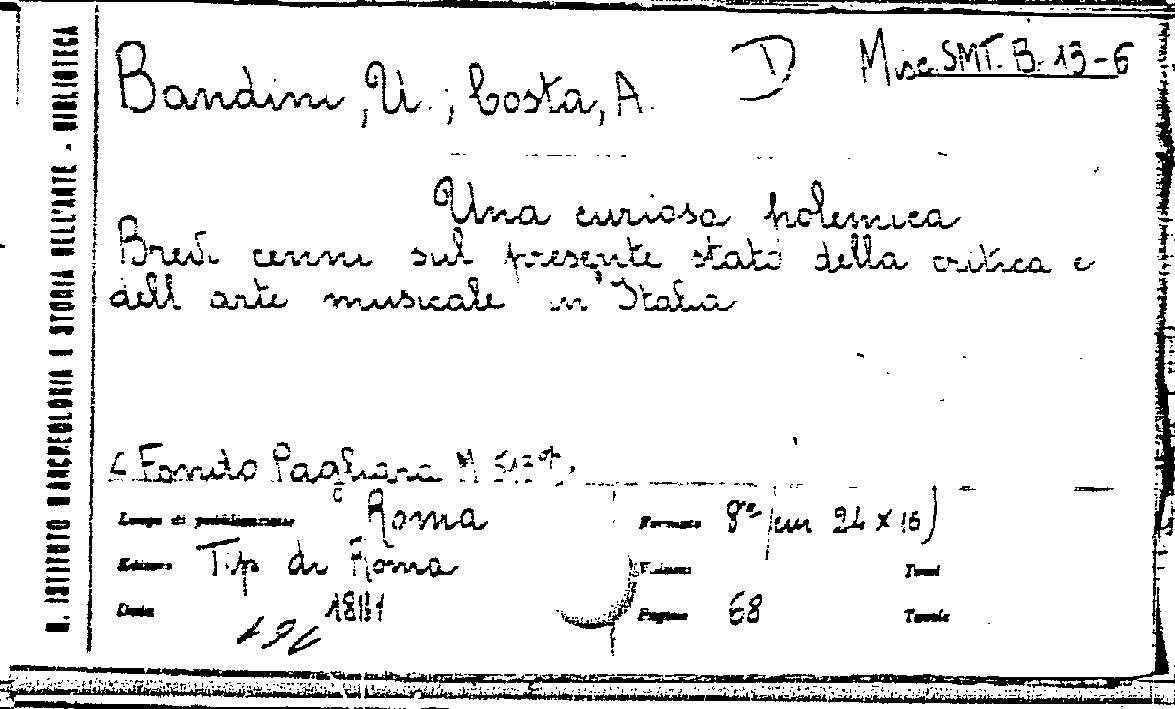 R. ISTITUTO D'ARCHEOLOGIA E STORIA DELL'ARTE - BIBLIOTECA
Bandini, U.; Costa, A. D Misc. SMT. B. 13-6
Una curiosa polemica
Brevi cenni sul presente stato della critica e
dell arte musicale in Italia
Fondo Pagliara M
Luogo di pubblicazione Roma Formato 8° (cm 24 x 16)
Editore Tip di Roma Volumi Tomi
Data 1881 Pagine 68 Tavole